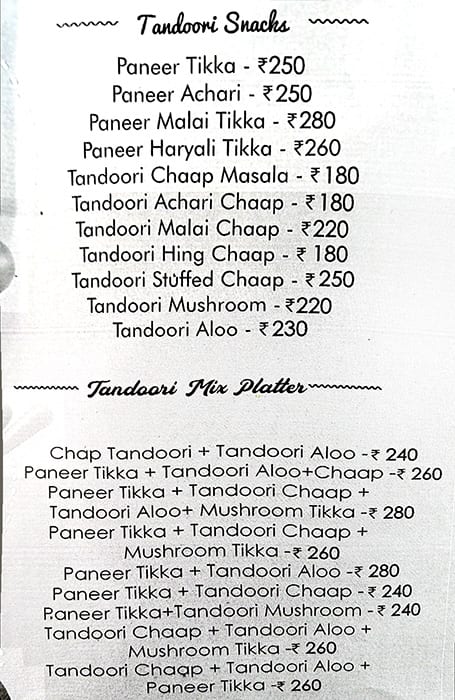 Tandoori Snacks
Paneer Tikka - ₹250
Paneer Achari - ₹250
Paneer Malai Tikka - ₹280
Paneer Haryali Tikka - ₹260
Tandoori Chaap Masala - ₹180
Tandoori Achari Chaap - ₹180
Tandoori Malai Chaap - ₹220
Tandoori Hing Chaap - ₹ 180
Tandoori Stuffed Chaap - ₹250
Tandoori Mushroom - ₹220
Tandoori Aloo - ₹230
Tandoori Mix Platter
Chap Tandoori + Tandoori Aloo -₹ 240
Paneer Tikka + Tandoori Aloo+Chaap -₹ 260
Paneer Tikka + Tandoori Chaap +
Tandoori Aloo+ Mushroom Tikka -₹ 280
Paneer Tikka + Tandoori Chaap +
Mushroom Tikka -₹ 260
Paneer Tikka + Tandoori Aloo -₹ 280
Paneer Tikka + Tandoori Chaap -₹ 240
Paneer Tikka+Tandoori Mushroom -₹ 240
Tandoori Chaap + Tandoori Aloo +
Mushroom Tikka -₹ 260
Tandoori Chaap + Tandoori Aloo +
Paneer Tikka -₹ 260